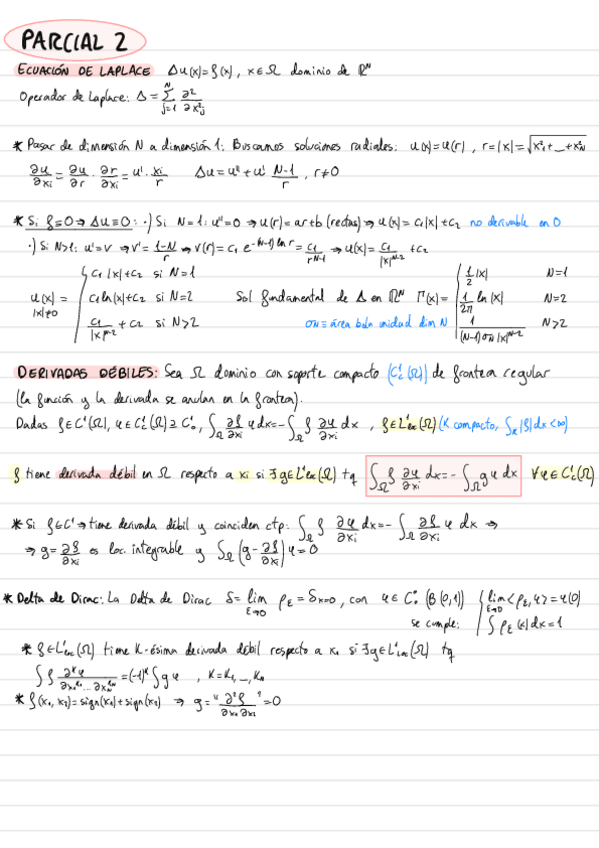 PARCIAL 2
ECUACIÓN DE LAPLACE Δu(x)=f(x), x∈Ω dominio de ℝᴺ
Operador de Laplace: Δ = Σ_{j=1}^{N} ∂²/∂x²_j
* Pasar de dimensión N a dimensión 1: Buscamos soluciones radiales: u(x)=u(r), r=|x|=√(x²₁+...+x²_N)
∂u/∂xi = ∂u/∂r · ∂r/∂xi = u' · xi/r Δu=u''+u' (N-1)/r, r≠0
* Si f≡0 ⇒ Δu≡0: ·) Si N=1: u''=0 ⇒ u(r)=ar+b (rectas) ⇒ u(x)=c₁|x|+c₂ no derivable en 0
·) Si N>1: u'=v ⇒ v'=(1-N)/r ⇒ v(r)=c₁ e^{-(N-1) ln r} = c₁/r^{N-1} ⇒ u(x)=c₁/|x|^{N-2} +c₂
u(x) = { c₁|x|+c₂ si N=1 ; c₁ln|x|+c₂ si N=2 ; c₁/|x|^{N-2} + c₂ si N>2
|x|≠0
Sol fundamental de Δ en ℝᴺ Γ(x)= { 1/2 |x| N=1 ; 1/2π ln|x| N=2 ; 1/((N-1)σN |x|^{N-2}) N>2
σN ≡ área bola unidad dim N
DERIVADAS DÉBILES: Sea Ω dominio con soporte compacto (C'c(Ω)) de frontera regular
(la función y la derivada se anulan en la frontera).
Dadas f∈C'(Ω), φ∈C'c(Ω)≡C'₀, ∫_Ω ∂f/∂xi φ dx=-∫_Ω f ∂φ/∂xi dx, f∈L'loc(Ω) (K compacto, ∫_K|f|dx<∞)
f tiene derivada débil en Ω respecto a xi si ∃g∈L'loc(Ω) tq ∫_Ω f ∂φ/∂xi dx=-∫_Ω gφ dx ∀φ∈C'c(Ω)
* Si f∈C' ⇒ tiene derivada débil y coinciden ctp: ∫_Ω f ∂φ/∂xi dx=-∫_Ω ∂f/∂xi φ dx ⇒
⇒ g=∂f/∂xi es loc. integrable y ∫_Ω (g-∂f/∂xi)φ=0
* Delta de Dirac: La Delta de Dirac δ= lim_{ε→0} ρε=δx=0, con φ∈C'₀ (B(0,1)) { lim_{ε→0}<ρε,φ>=φ(0)
se cumple: ∫ρε(x)dx=1
* f∈L'loc(Ω) tiene K-ésima derivada débil respecto a x₁ si ∃g∈L'loc(Ω) tq
∫f ∂^Kφ/∂x₁^{K₁}...∂x_N^{K_N} =(-1)^K∫gφ, K=K₁,...,Kn
* f(x₁,x₂)=sign(x₁)+sign(x₂) ⇒ g="∂²f/∂x₁∂x₂"=0